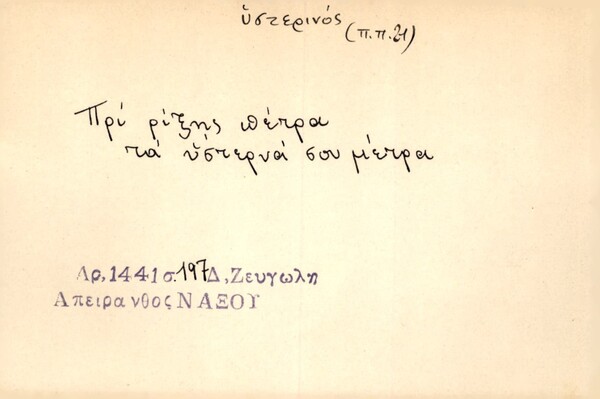 ὑστερινός
(π.π.21)
Πρί ρίξης πέτρα
τά ὕστερνά σου μέτρα
Αρ,1441 σ.197 Δ,Ζευγωλη
Απειρανθος ΝΑΞΟΥ